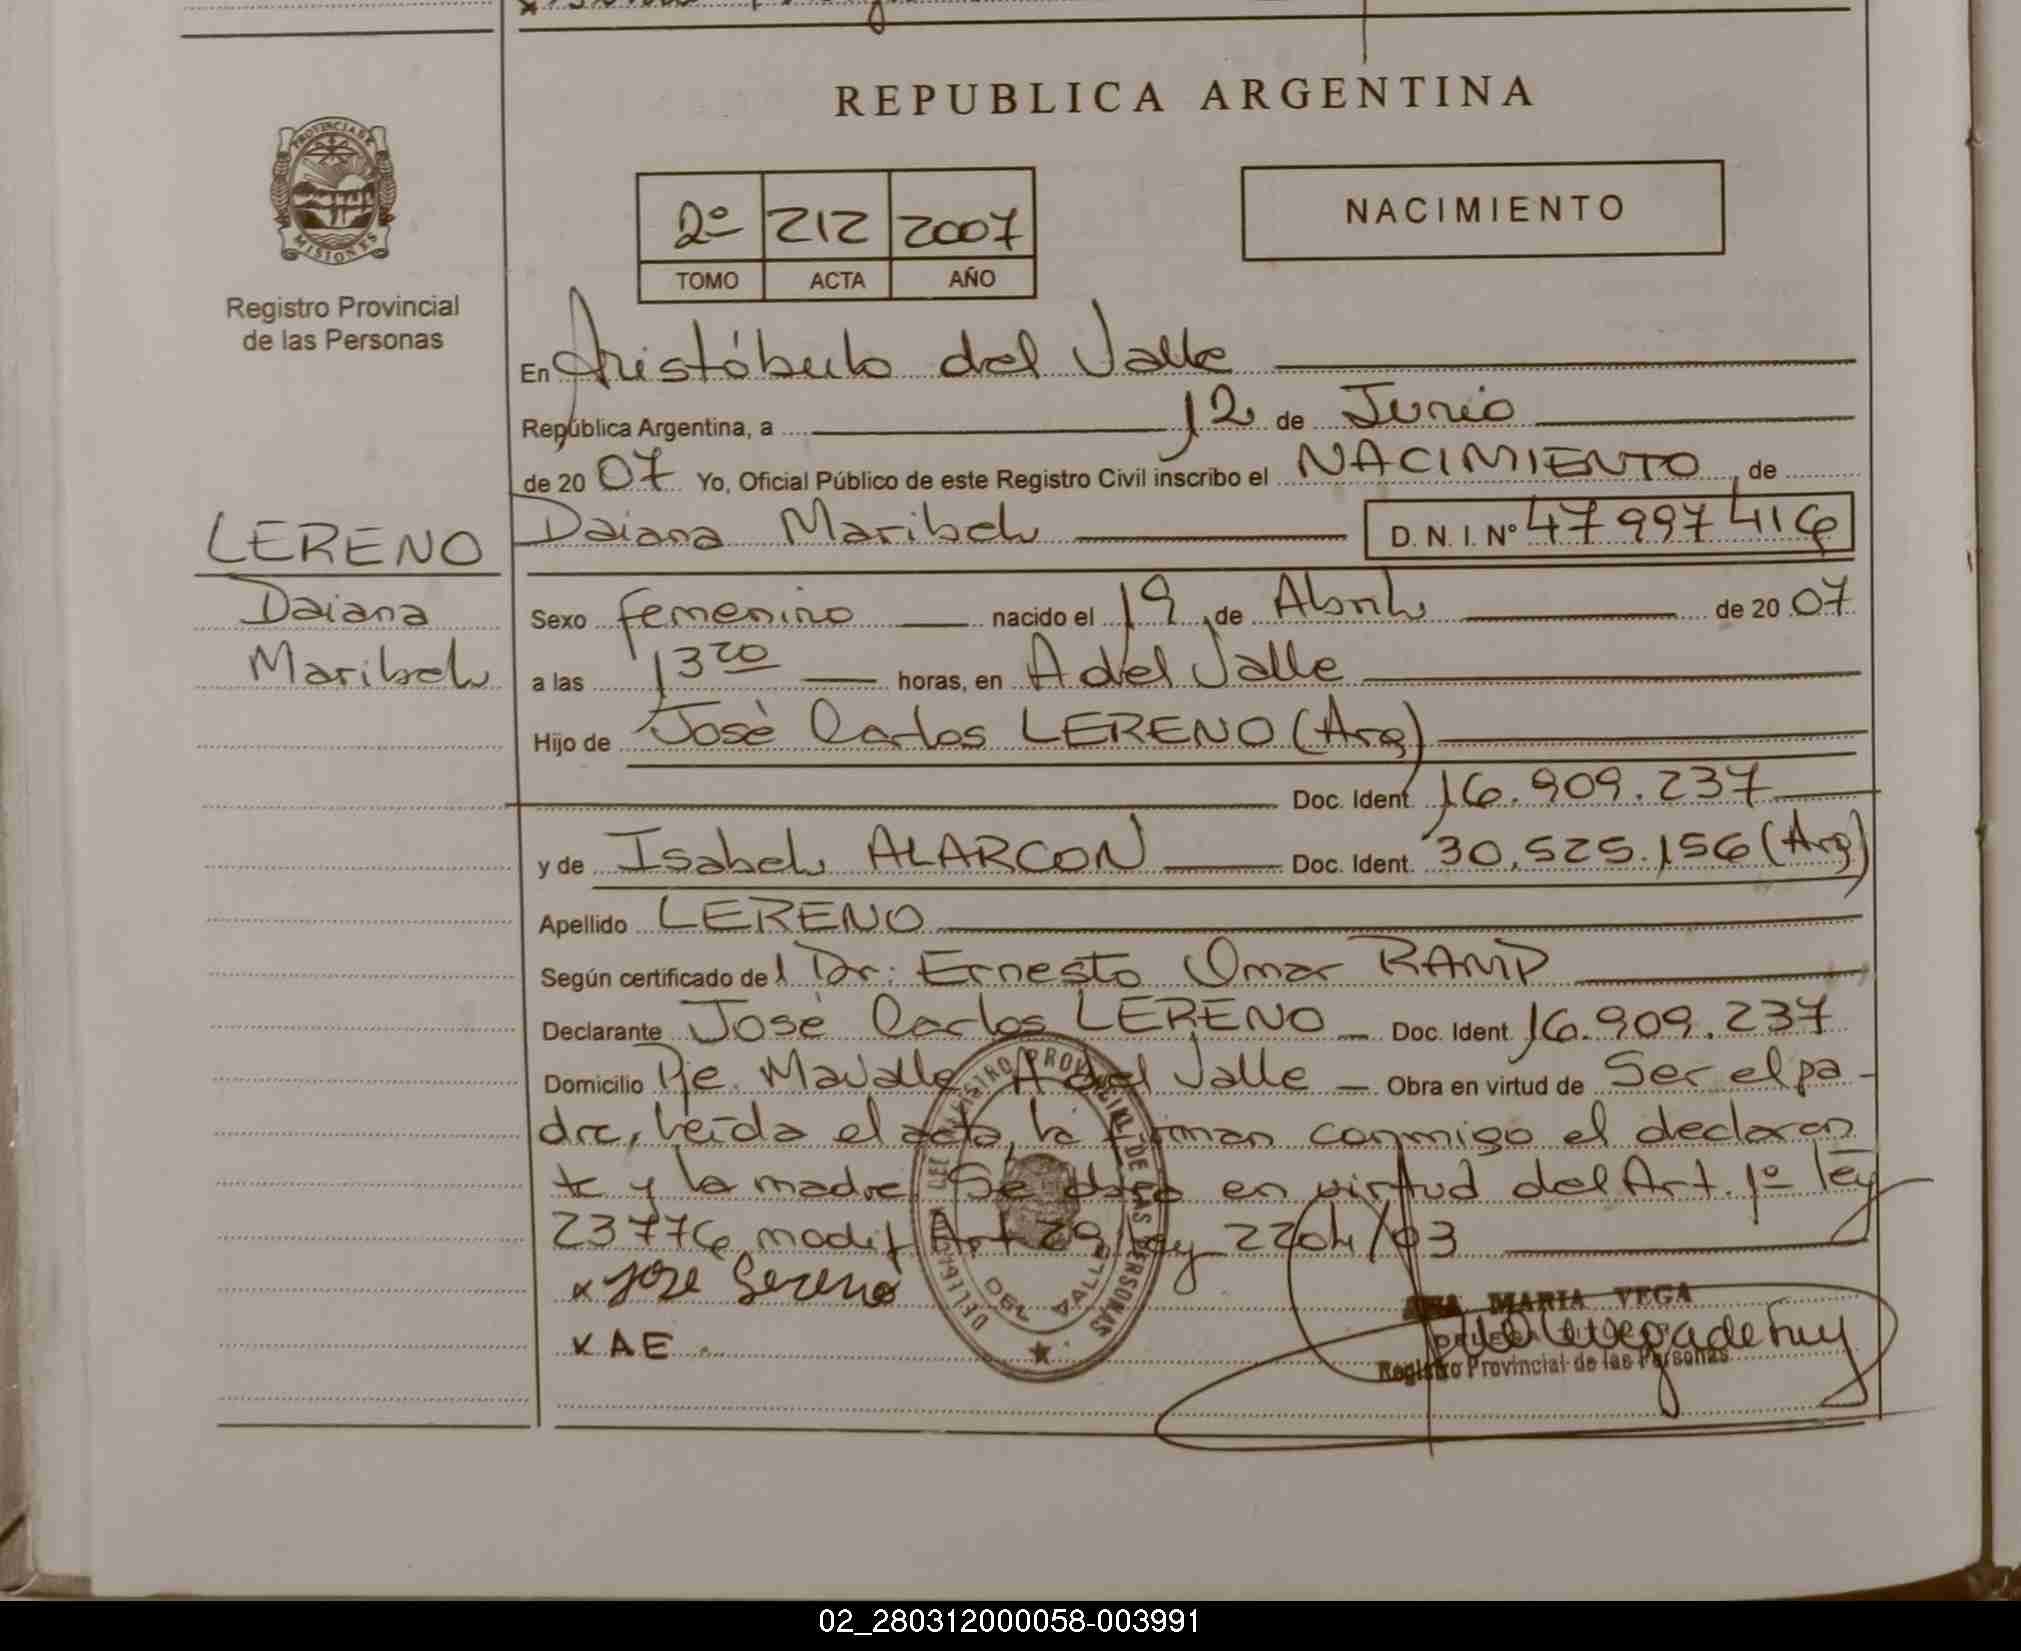 REPUBLICA ARGENTINA
PROVINCIA DE
MISIONES
Registro Provincial
de las Personas
2º 212 2007
TOMO ACTA AÑO
NACIMIENTO
En Aristóbulo del Valle
República Argentina, a 12 de Junio
de 2007 Yo, Oficial Público de este Registro Civil inscribo el NACIMIENTO, de
Daiana Maribel D. N. I. Nº 47997416
LERENO
Daiana
Maribel
Sexo femenino nacido el 19 de Abril de 2007
a las 13 20 horas, en A del Valle
Hijo de José Carlos LERENO (Arg)
Doc. Ident. 16.909.237
y de Isabel ALARCON Doc. Ident. 30.525.156 (Arg)
Apellido LERENO
Según certificado del Dr. Ernesto Omar RAMP
Declarante José Carlos LERENO Doc. Ident. 16.909.237
Domicilio Pje. Mavalle A del Valle Obra en virtud de Ser el pa-
dre, leída el acta, la firman conmigo el declaran
te y la madre. Se en virtud del Art. 1º ley
23776 modif Art 29 ley 2204/03
x José Lereno
x AE.
DEL VALLE
ANA MARIA VEGA
Registro Provincial de las Personas
02_280312000058-003991